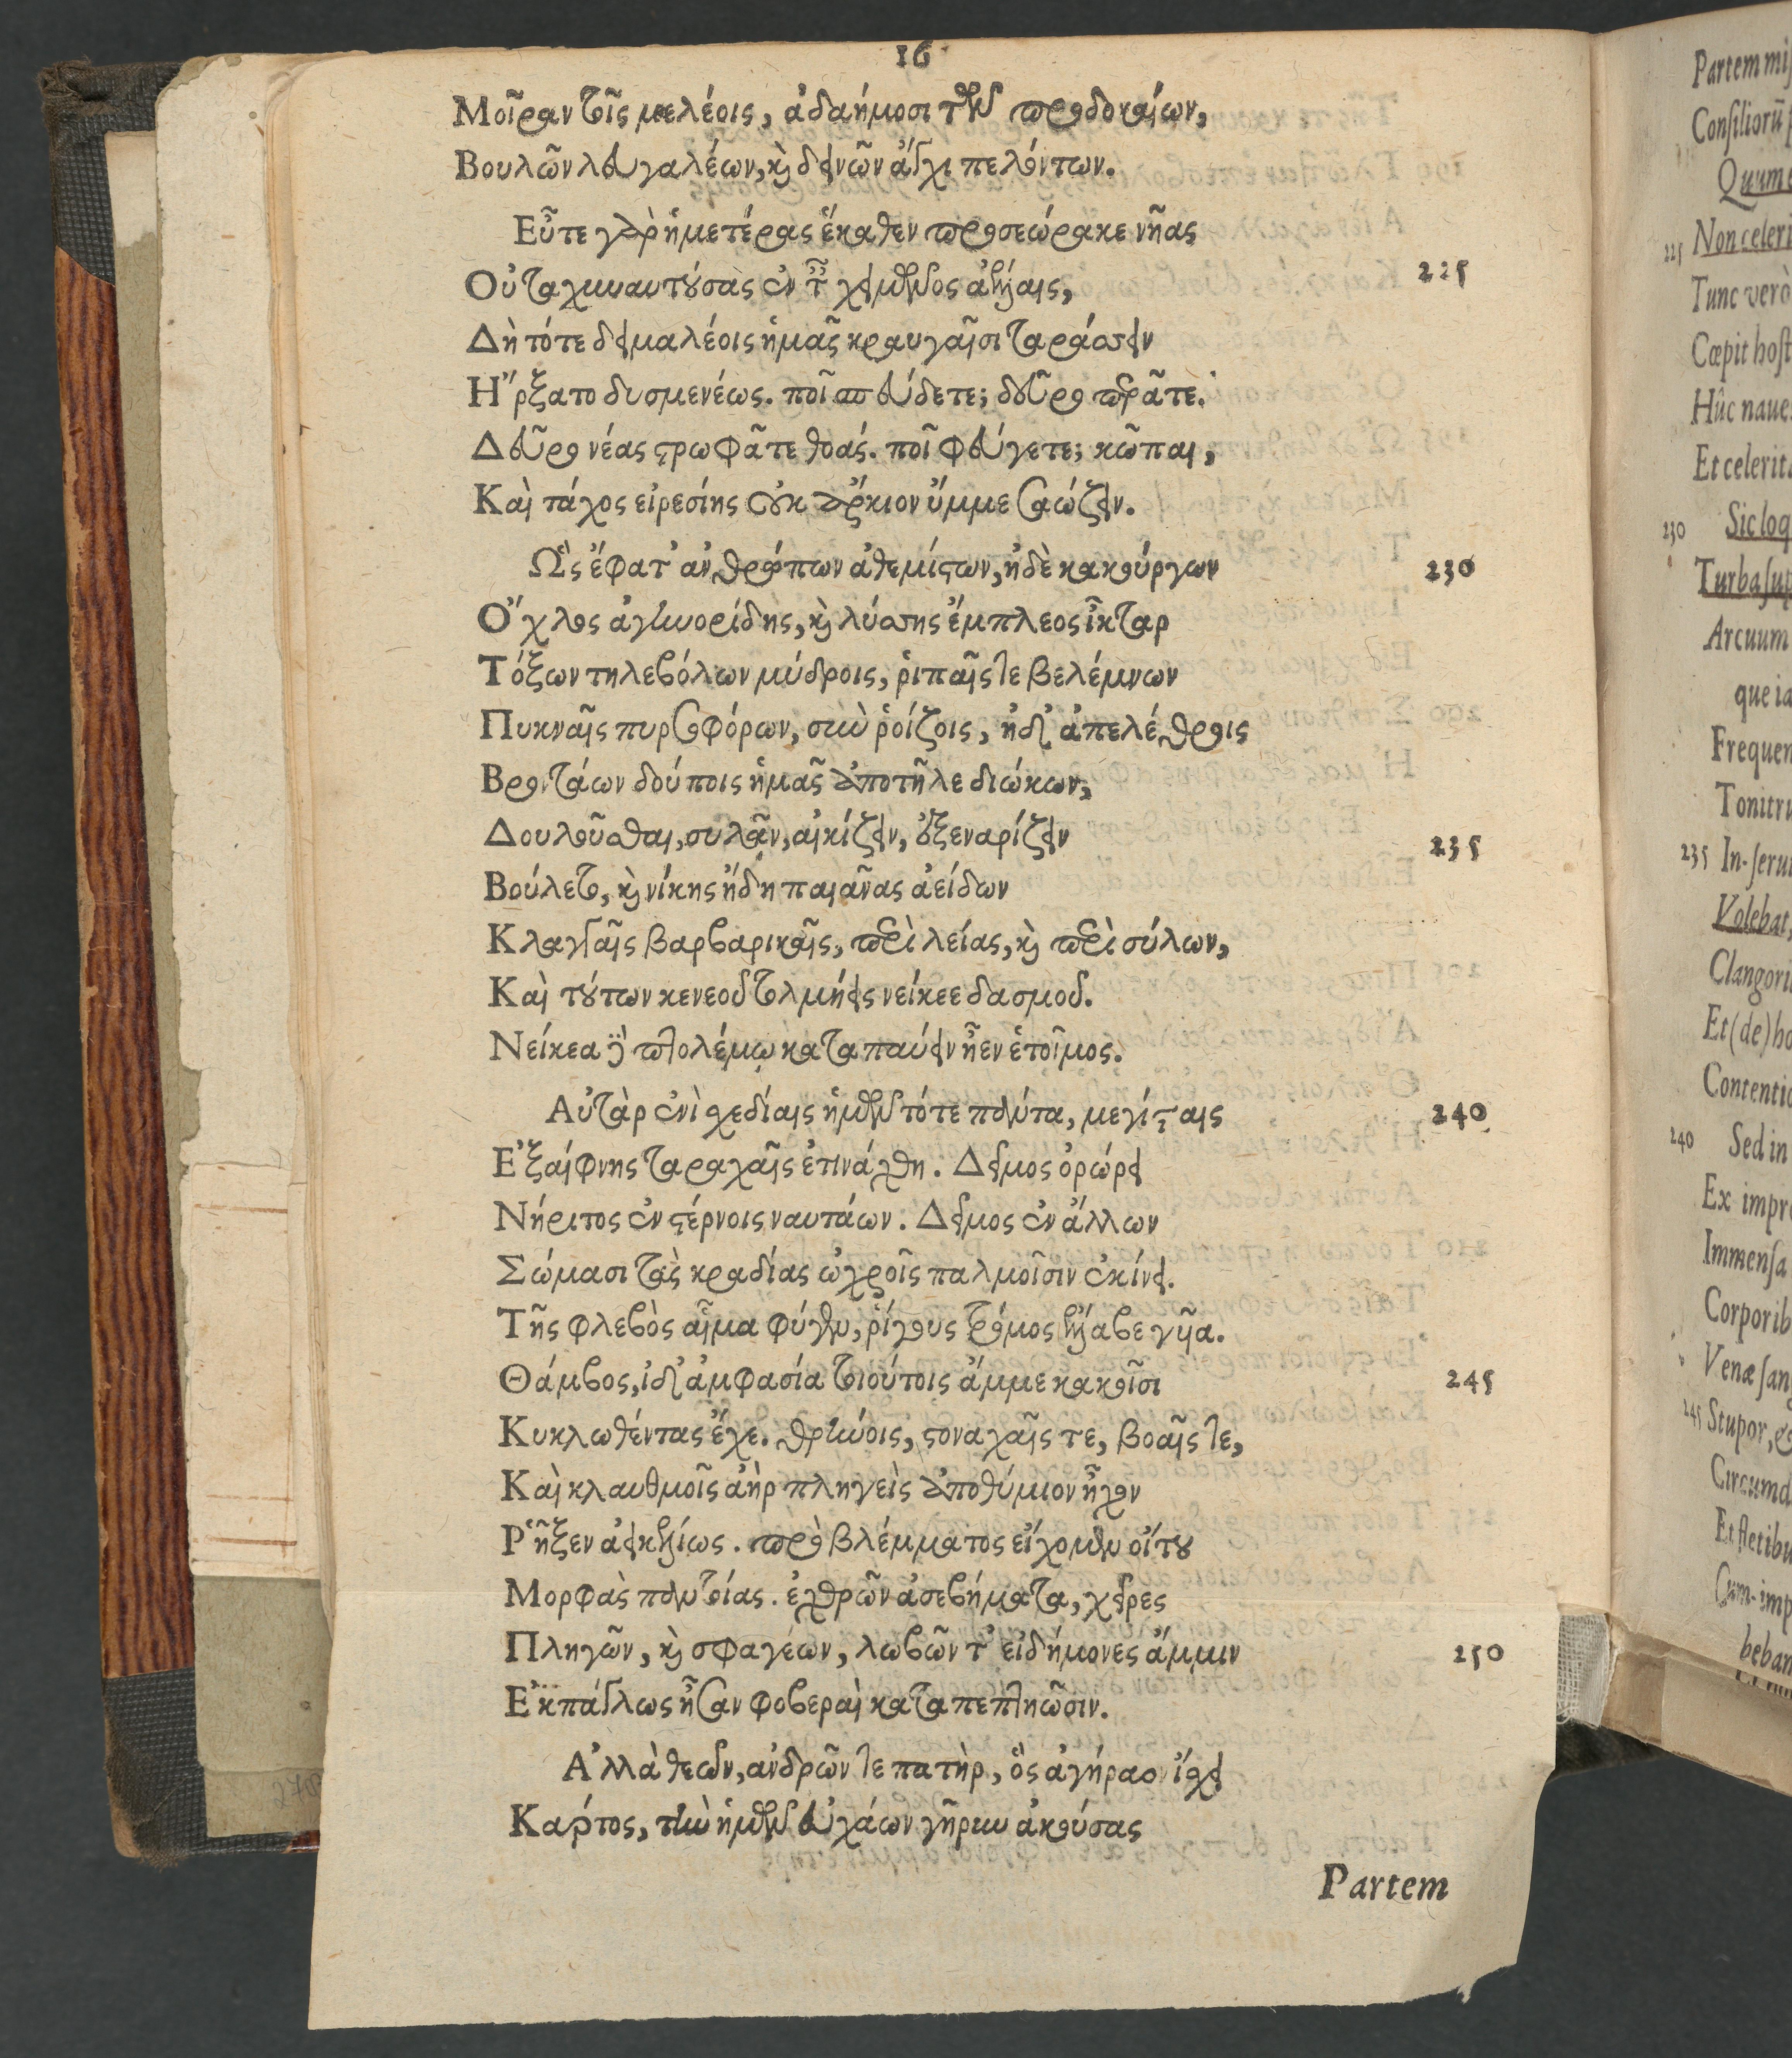 16
Μοῖραν τοῖς μελέοις, ἀδαήμοσι τῶν προδοκαίων,
Βουλῶν λευγαλέων, καὶ δεινῶν ἄγχι πελόντων.
Εὖτε γὰρ ἡμετέρας ἕκαθεν προσεώρακε νῆας
Οὐ ταχυναυτούσας ἐν τῇ χείματος ἀέλλαις,
Δὴ τότε δειμαλέοις ἡμᾶς κραυγαῖσι ταράσσειν
Ἤρξατο δυσμενέως. ποῖ σπεύδετε; δεῦρο περᾶτε.
Δεῦρο νέας στρωφᾶτε θοάς. ποῖ φεύγετε; κῶπαι,
Καὶ τάχος εἰρεσίης οὐκ ἄρκιον ὔμμε σαώζειν.
Ὣς ἔφατ' ἀνθρώπων ἀθεμίστων, ἠδὲ κακούργων 230
Ὄχλος ἀγηνορίδης, καὶ λύσσης ἔμπλεος ἶκταρ
Τόξων τηλεβόλων μύδροις, ῥιπαῖς τε βελέμνων
Πυκναῖς πυρσοφόρων, σὺν ῥοίζοις, ἠδ' ἀπελέθροις
Βροντάων δούποις ἡμᾶς ἀποτῆλε διώκων,
Δουλεῦσθαι, συλᾷν, αἰκίζειν, ἐξεναρίζειν 235
Βούλετο, καὶ νίκης ἤδη παιᾶνας ἀείδων
Κλαγγαῖς βαρβαρικαῖς, περὶ λείας, καὶ περὶ σύλων,
Καὶ τούτων κενεοῦ τολμήεις νείκεε δασμοῦ.
Νείκεα δὲ πτολέμῳ καταπαύειν ἦεν ἑτοῖμος.
Αὐτὰρ ἐνὶ σχεδίαις ἡμῶν τότε πάντα, μεγίσταις 240
Ἐξαίφνης ταραχαῖς ἐτινάχθη. Δεῖμος ὀρώρει
Νήριτος ἐν στέρνοις ναυτάων. Δεῖμος ἐν ἄλλων
Σώμασι τὰς κραδίας ὠχροῖς παλμοῖσιν ἐκίνει.
Τῆς φλεβὸς αἷμα φύγεν, ῥίγους τρόμος ἔλλαβε γυῖα.
Θάμβος, ἰδ' ἀμφασία τοιούτοις ἄμμε κακοῖσι 245
Κυκλωθέντας ἔχε. θρήνοις, στοναχαῖς τε, βοαῖς τε,
Καὶ κλαυθμοῖς ἀὴρ πληγεὶς ἀποθύμιον ἦχον
Ῥῆξεν ἀεικελίως. πρὸ βλέμματος εἴχομεν οἴτου
Μορφὰς παντοίας. ἐχθρῶν ἀσεβήματα, χεῖρες
Πληγῶν, καὶ σφαγέων, λωβῶν τ' εἰδήμονες ἄμμιν 250
Ἐκπάγλως ἦσαν φοβεραὶ καταπεπτηῶσιν.
Ἀλλὰ θεῶν, ἀνδρῶν τε πατὴρ, ὃς ἀγήραον ἴσχει
Κάρτος, τὴν ἡμῶν εὐχάων γῆρυν ἀκούσας
Partem
225 Non celeri
Tunc verò
Cœpit host
Hûc naue
230 Sic loq
Turba sup
Arcuum
que ia
Frequen
Tonitru
235 In-serui
Volebat,
Clangori
Et (de) ho
Contentio
240 Sed in
Ex impro
Immensa
Corporib
Venæ sang
245 Stupor, &
Circumd
Et fletibu
Cum-imp
beban